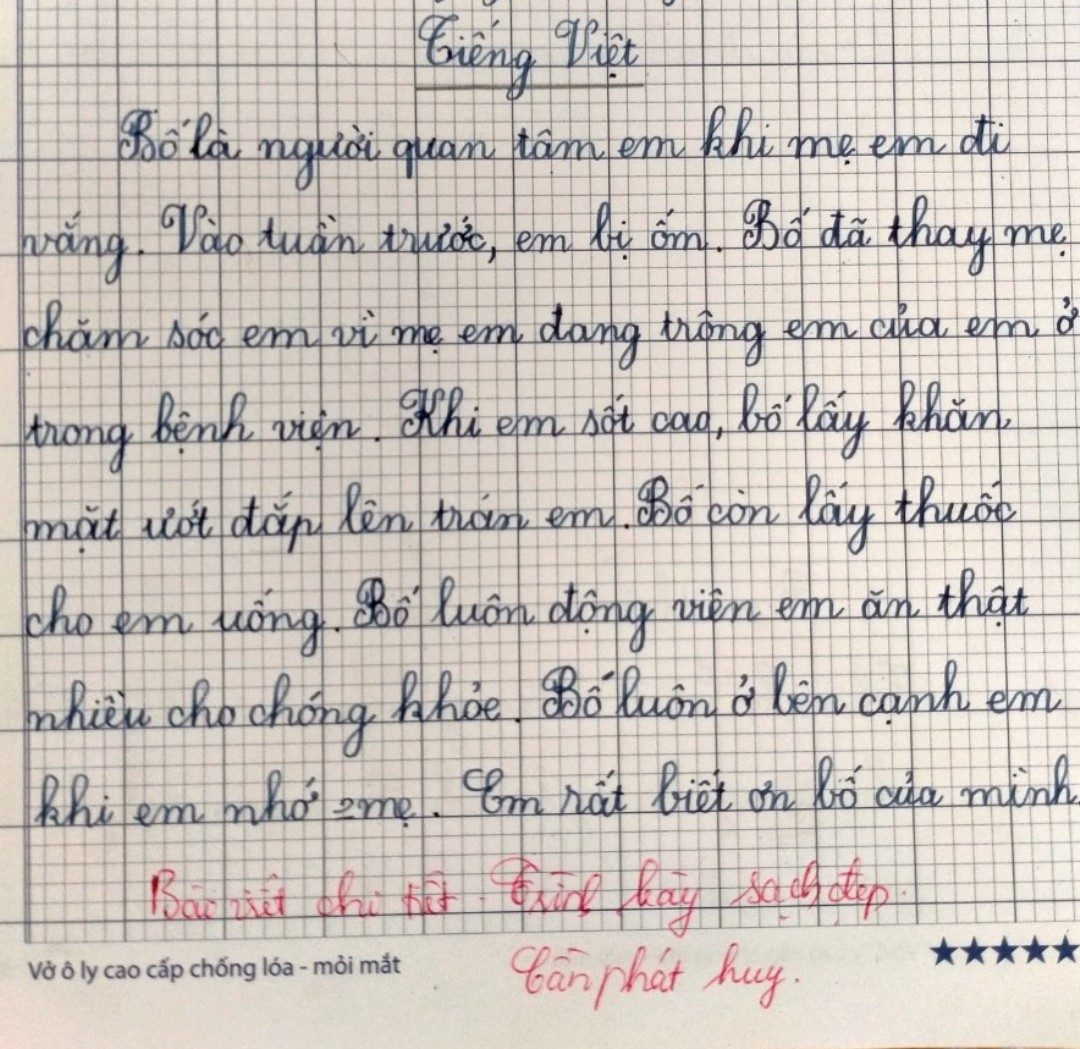 Tiếng Việt
Bố là người quan tâm em khi mẹ em đi
vắng. Vào tuần trước, em bị ốm. Bố đã thay mẹ
chăm sóc em vì mẹ em đang trông em của em ở
trong bệnh viện. Khi em sốt cao, bố lấy khăn
mặt ướt đắp lên trán em. Bố còn lấy thuốc
cho em uống. Bố luôn động viên em ăn thật
nhiều cho chóng khỏe. Bố luôn ở bên cạnh em
khi em nhớ mẹ. Em rất biết ơn bố của mình
Bài viết chi tiết. Trình bày sạch đẹp.
Cần phát huy.
Vở ô ly cao cấp chống lóa - mỏi mắt